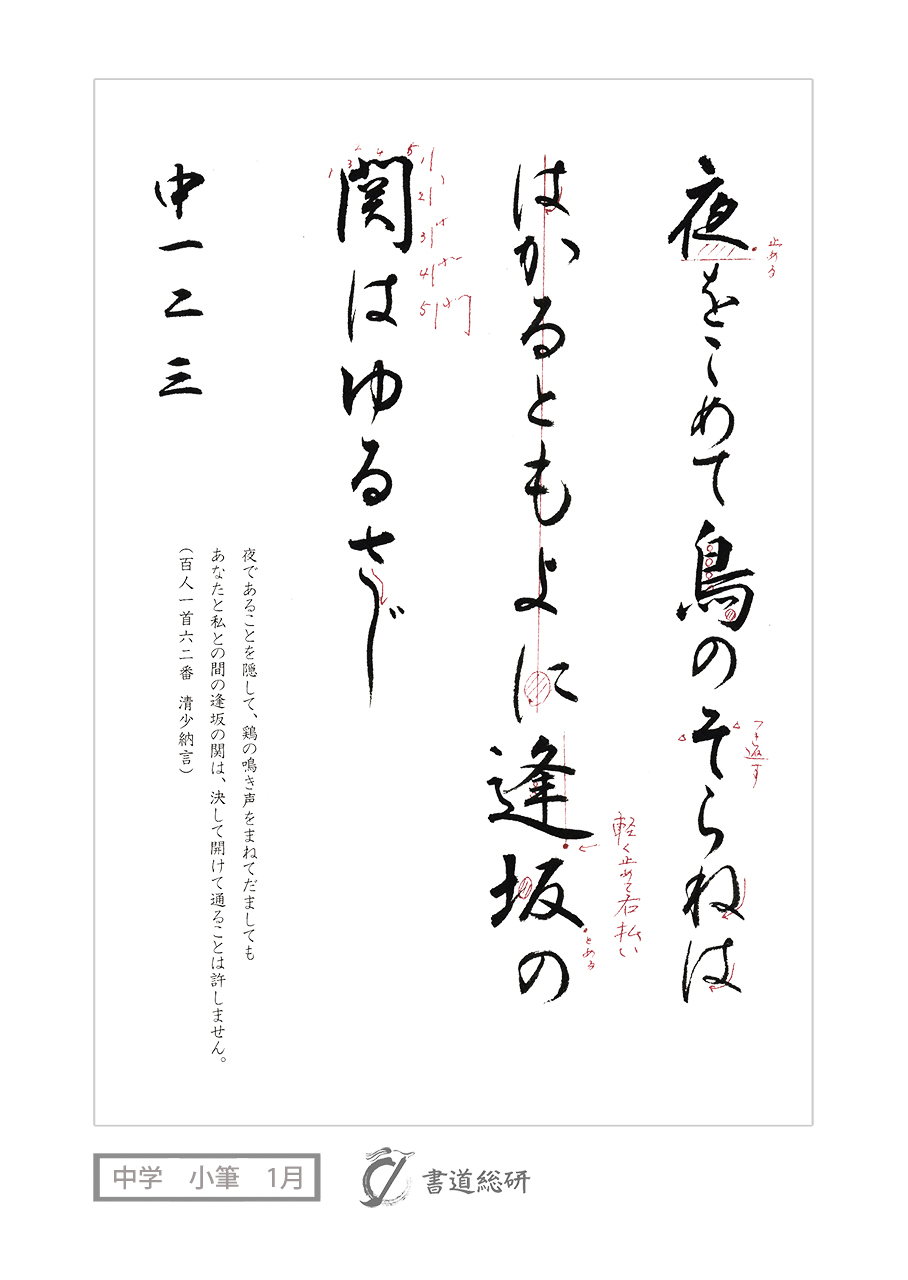 夜をこめて鳥のそらねは
止める
つき返す
はかるともよに逢坂の
軽く止めて右払い
とめる
関はゆるさじ
1 2 3 4 5
1
2
3
4
5
中一二三
夜であることを隠して、鶏の鳴き声をまねてだましても
あなたと私との間の逢坂の関は、決して開けて通ることは許しません。
(百人一首六二番 清少納言)
中学 小筆 1月
書道総研